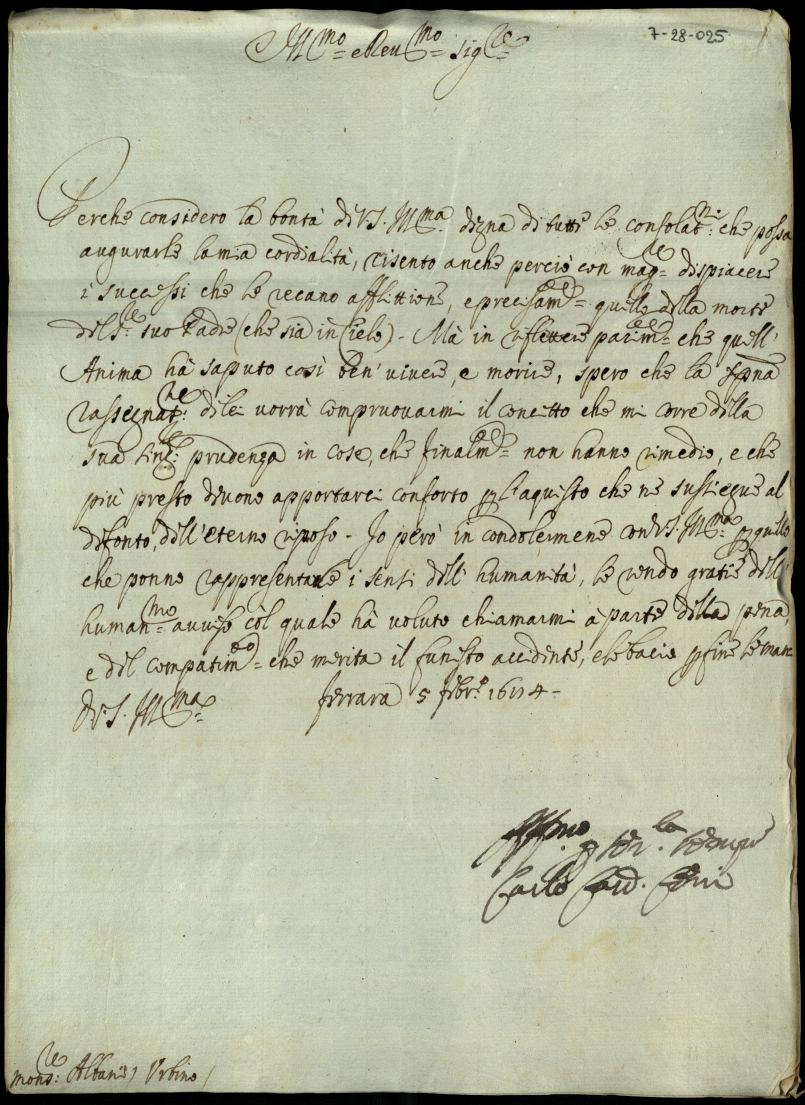 7-28-025
Ill.mo e Reu.mo Sig.re
Perche considero la bontà di V.S. Ill.ma degna di tutte le consolat.ni che possa
augurarle la mia cordialità, risento anche perciò con mag.re dispiacere
i successi che le recano afflittione, e precisam.te quello della morte
del S.r suo Padre (che sia in Cielo). Mà in riflettere parim.te che quell'
Anima hà saputo così ben' uiuere, e morire, spero che la
rassegnat.ne di lei uorrà compruouarmi il concetto che mi corre della
sua sing.re prudenza in cose, che finalm.te non hanno rimedio, e che
più presto deuono apportarci conforto p l'aquisto che ne sussiegue al
defonto, dell'eterno riposo. Io però in condolermene con V.S. Ill.ma p quello
che ponno rappresentarle i sensi dell' humanità, le rendo gratie dell'
human.mo auuiso còl quale hà uoluto chiamarmi à parte della pena,
e del compatim.to che merita il funesto accidente, e le bacio p fine le mani
Di V.S. Ill.ma Ferrara 5 Febr.o
Aff.mo p ser.la sempre
Carlo Card. Cerri
Mons.re Albani Urbino